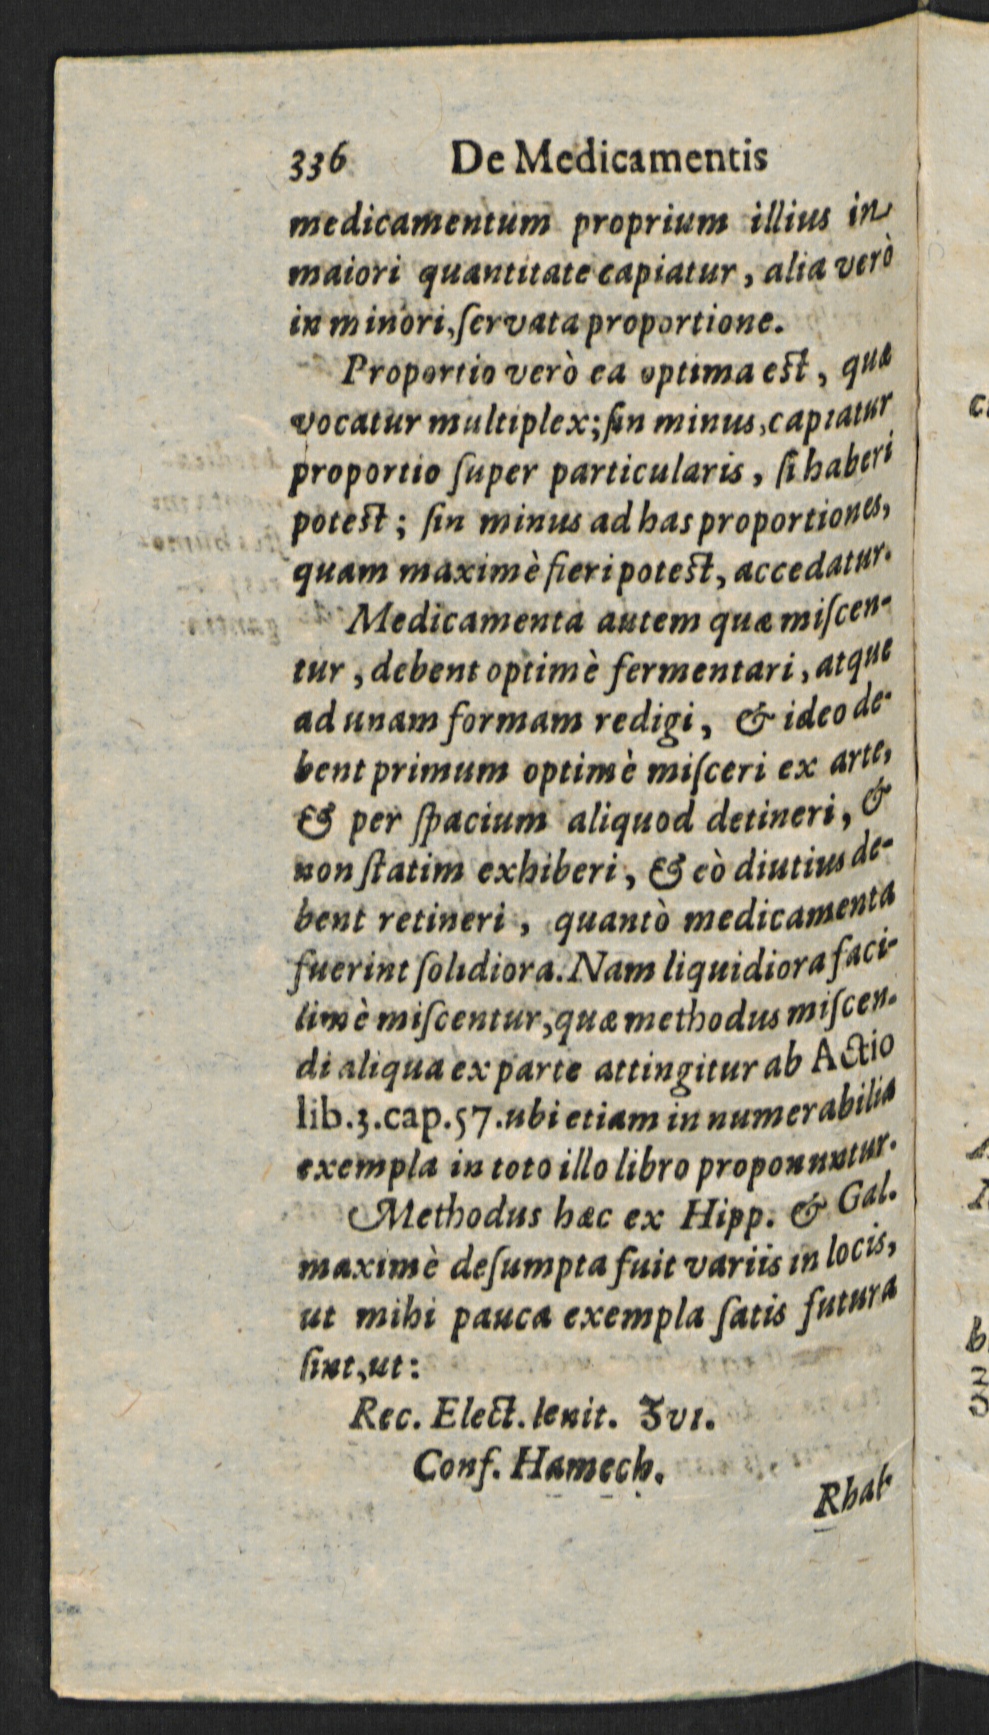 336 De Medicamentis
medicamentum proprium illius in
maiori quantitate capiatur, alia verò
in minori, ſervata proportione.
Proportio verò ea optima eſt, quæ
vocatur multiplex; ſin minus, capiatur
proportio ſuper particularis, ſi haberi
poteſt; ſin minus ad has proportiones,
quam maximè fieri poteſt, accedatur.
Medicamenta autem quæ miſcen-
tur, debent optimè fermentari, atque
ad unam formam redigi, & ideo de-
bent primum optimè miſceri ex arte,
& per ſpacium aliquod detineri, &
non ſtatim exhiberi, & eò diutius de-
bent retineri, quantò medicamenta
fuerint ſolidiora. Nam liquidiora faci-
limè miſcentur, quæ methodus miſcen-
di aliqua ex parte attingitur ab Actio
lib.3.cap.57. ubi etiam innumerabilia
exempla in toto illo libro proponuntur.
Methodus hæc ex Hipp. & Gal.
maximè deſumpta fuit variis in locis,
ut mihi pauca exempla ſatis futura
ſint, ut:
Rec. Elect. lenit. ʒvı.
Conf. Hamech.
Rhab